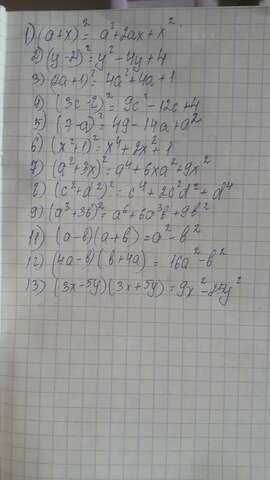 1) (a+x)² = a²+2ax+x²
2) (y-2)² = y²-4y+4
3) (2a+1)² = 4a²+4a+1
4) (3c-2)² = 9c²-12c+4
5) (7-a)² = 49-14a+a²
6) (x²+1)² = x⁴+2x²+1
7) (a²+3x)² = a⁴+6xa²+9x²
8) (c²+d²)² = c⁴+2c²d²+d⁴
9) (a³+3b)² = a⁶+6a³b+9b²
11) (a-b)(a+b) = a²-b²
12) (4a-b)(b+4a) = 16a²-b²
13) (3x-5y)(3x+5y) = 9x²-25y²